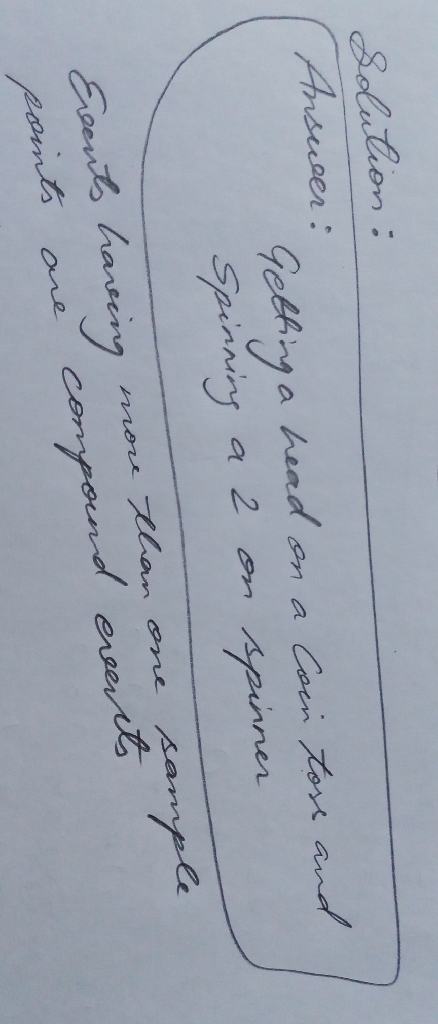 Solution:
Answer: Getting a head on a coin toss and
Spinning a 2 on spinner
Events having more than one sample
points are compound events